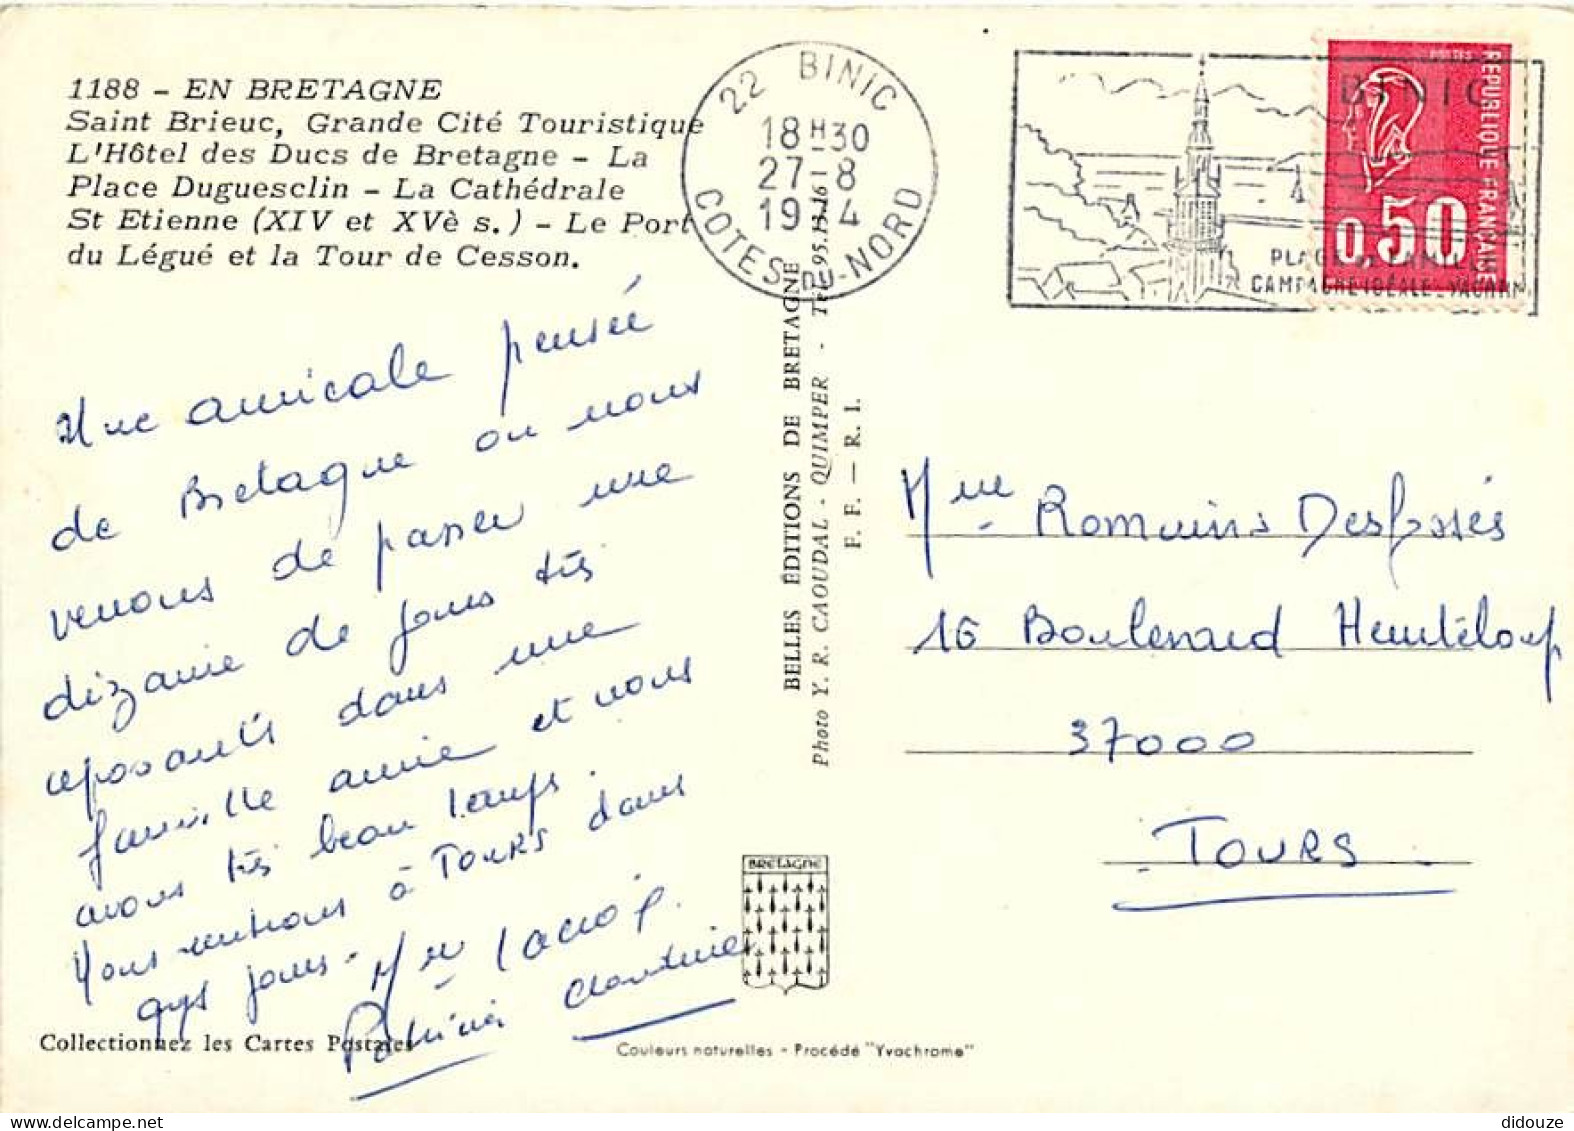 1188 - EN BRETAGNE
Saint Brieuc, Grande Cité Touristique
L'Hôtel des Ducs de Bretagne - La
Place Duguesclin - La Cathédrale
St Etienne (XIV et XVè s.) - Le Port
du Légué et la Tour de Cesson.
22 BINIC
18H30
27-8
1974
COTES-DU-NORD
BINIC
CAMPAGNE IDÉALE
POSTES
REPUBLIQUE FRANÇAISE
0,50
Une amicale pensée
de Bretagne ou nous
venons de passer une
dizaine de jours très
reposants dans une
famille amie et nous
avons très beau temps.
Nous rentrons à Tours dans
qqs jours.
BELLES ÉDITIONS DE BRETAGNE
Photo Y. R. CAOUDAL - QUIMPER - Tél. 95.13.16
F. F. — R. I.
Mme Romains Desfossés
16 Boulevard Heurteloup
37000
TOURS
BRETAGNE
Collectionnez les Cartes Postales
Couleurs naturelles - Procédé "Yvachrome"
didouze